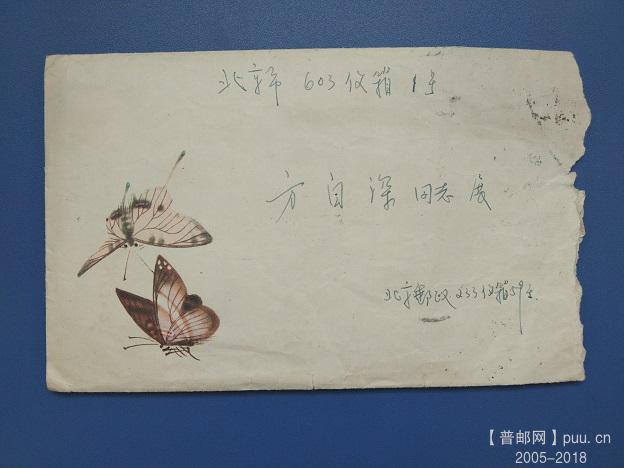 北京市 603信箱 1号
方自深同志展
北京邮政 233信箱59号
【普邮网】puu.cn
2005-2018